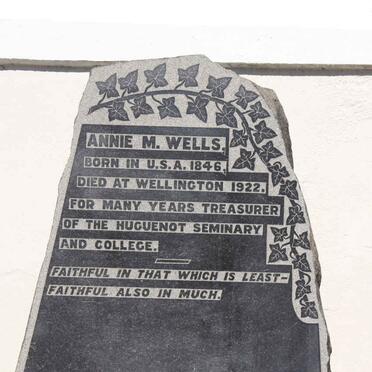 ANNIE M. WELLS,
BORN IN U.S.A. 1846,
DIED AT WELLINGTON 1922.
FOR MANY YEARS TREASURER
OF THE HUGUENOT SEMINARY
AND COLLEGE.
FAITHFUL IN THAT WHICH IS LEAST—
FAITHFUL ALSO IN MUCH.